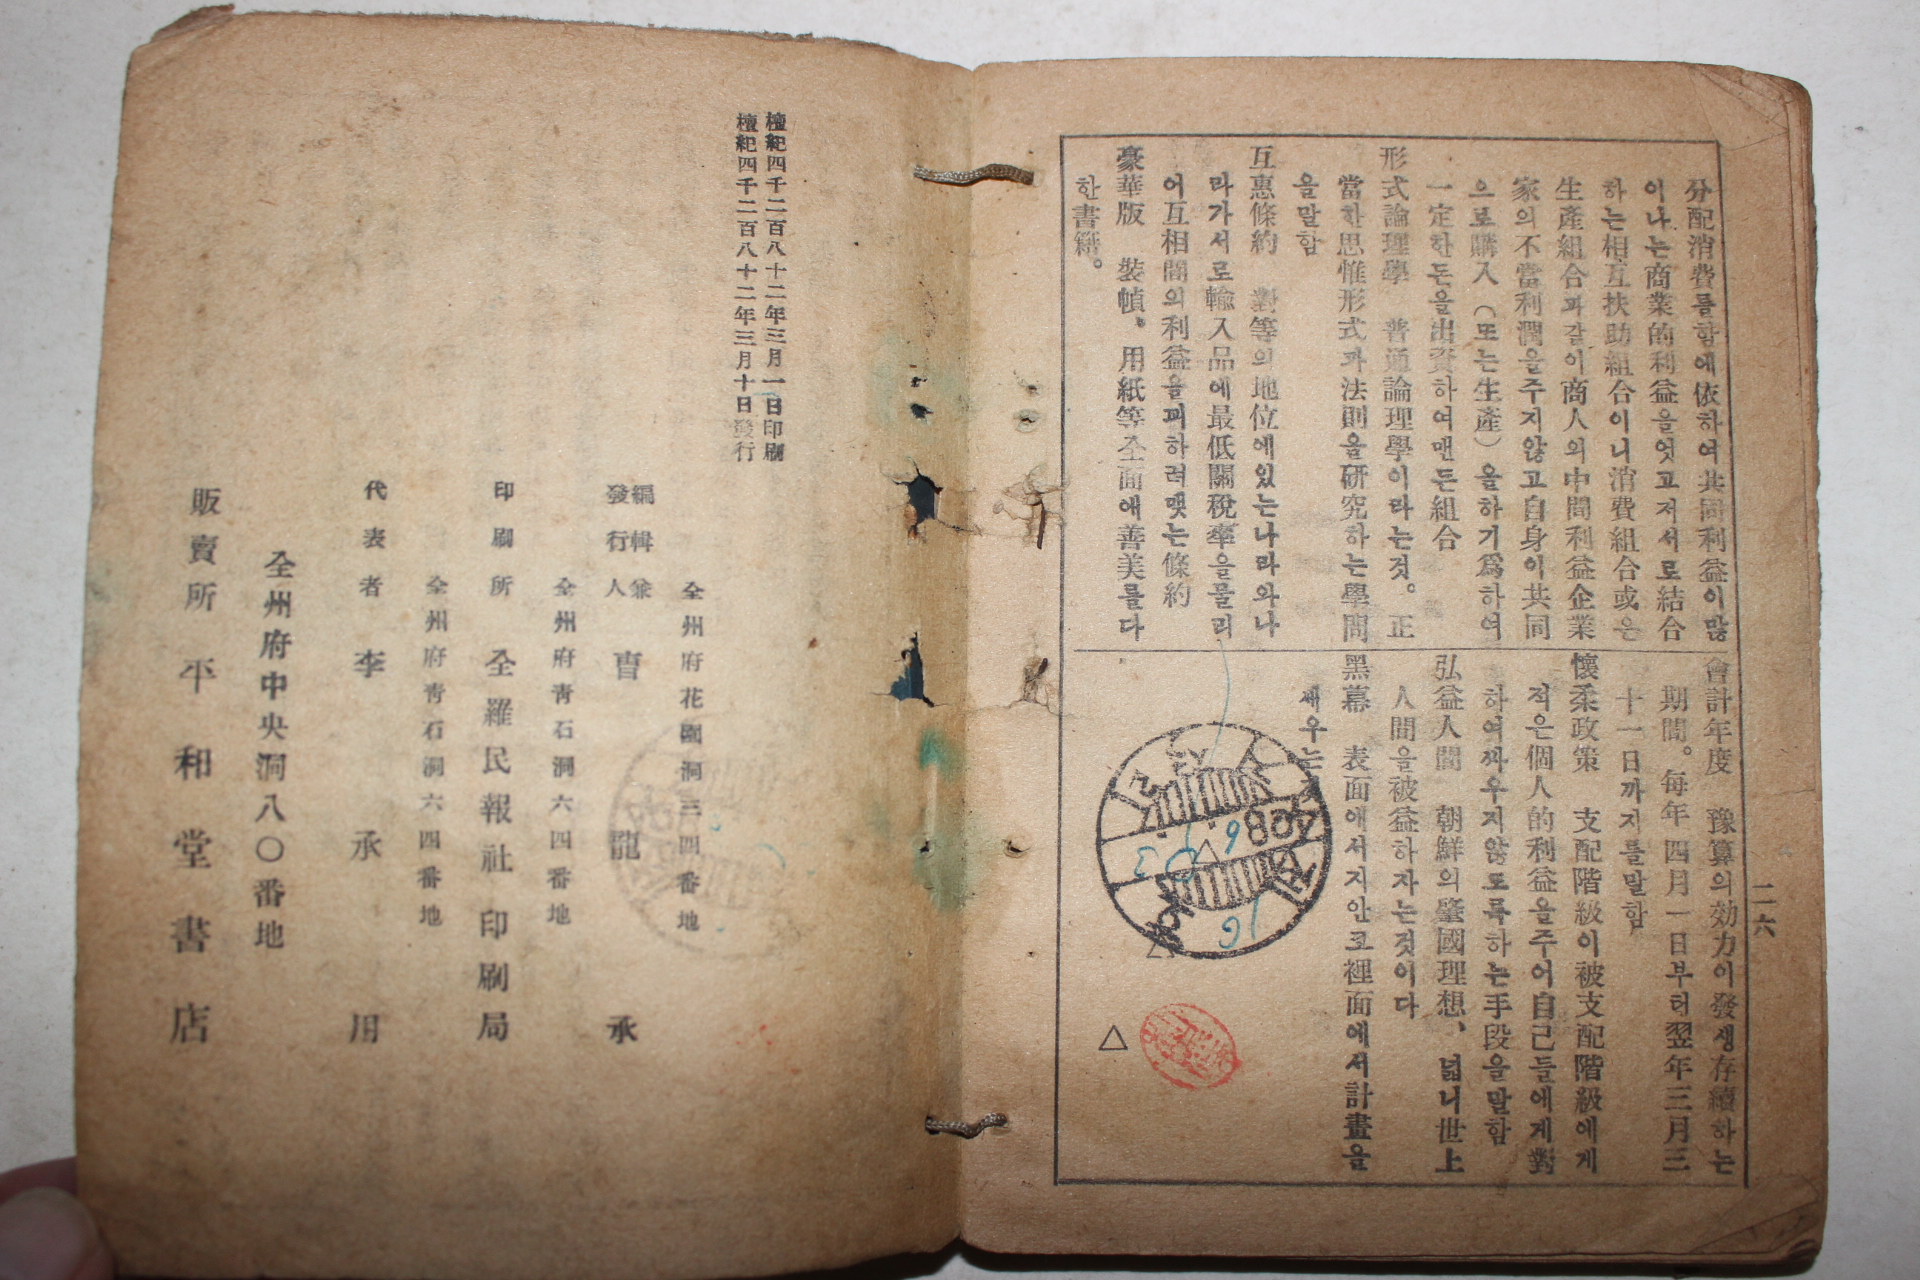 分配消費를함에依하여共同利益이많
이나는商業的利益을엇고저서로結合
하는相互扶助組合이니消費組合或은
生產組合과갈이商人의中間利益企業
家의不當利潤을주지않고自身이共同
으로購入(또는生產)을하기爲하여
一定하돈을出資하여맨든組合
形式論理學 普通論理學이라는것。正
當한思惟形式과法則을硏究하는學問
을말함
互惠條約 對等의地位에있는나라와나
라가서로輸入品에最低關稅率을물리
어互相間의利益을꾀하려맺는條約
豪華版 裝幀。用紙等全面에善美를다
한書籍。
會計年度 豫算의効力이發生存續하는
期間。每年四月一日부터翌年三月三
十一日까지를말함
懷柔政策 支配階級이被支配階級에게
적은個人的利益을주어自己들에게對
하여싸우지않도록하는手段을말함
弘益人間 朝鮮의肇國理想、넓니世上
人間을被益하자는것이다
黑幕 表面에서지안코裡面에서計畫을
세우는
二六
△
檀紀四千二百八十二年三月一日印刷
檀紀四千二百八十二年三月十日發行
全州府花園洞三四番地
編輯兼
發行人 曺龍承
全州府靑石洞六四番地
印刷所 全羅民報社印刷局
全州府靑石洞六四番地
代表者 李承用
全州府中央洞八〇番地
販賣所 平和堂書店